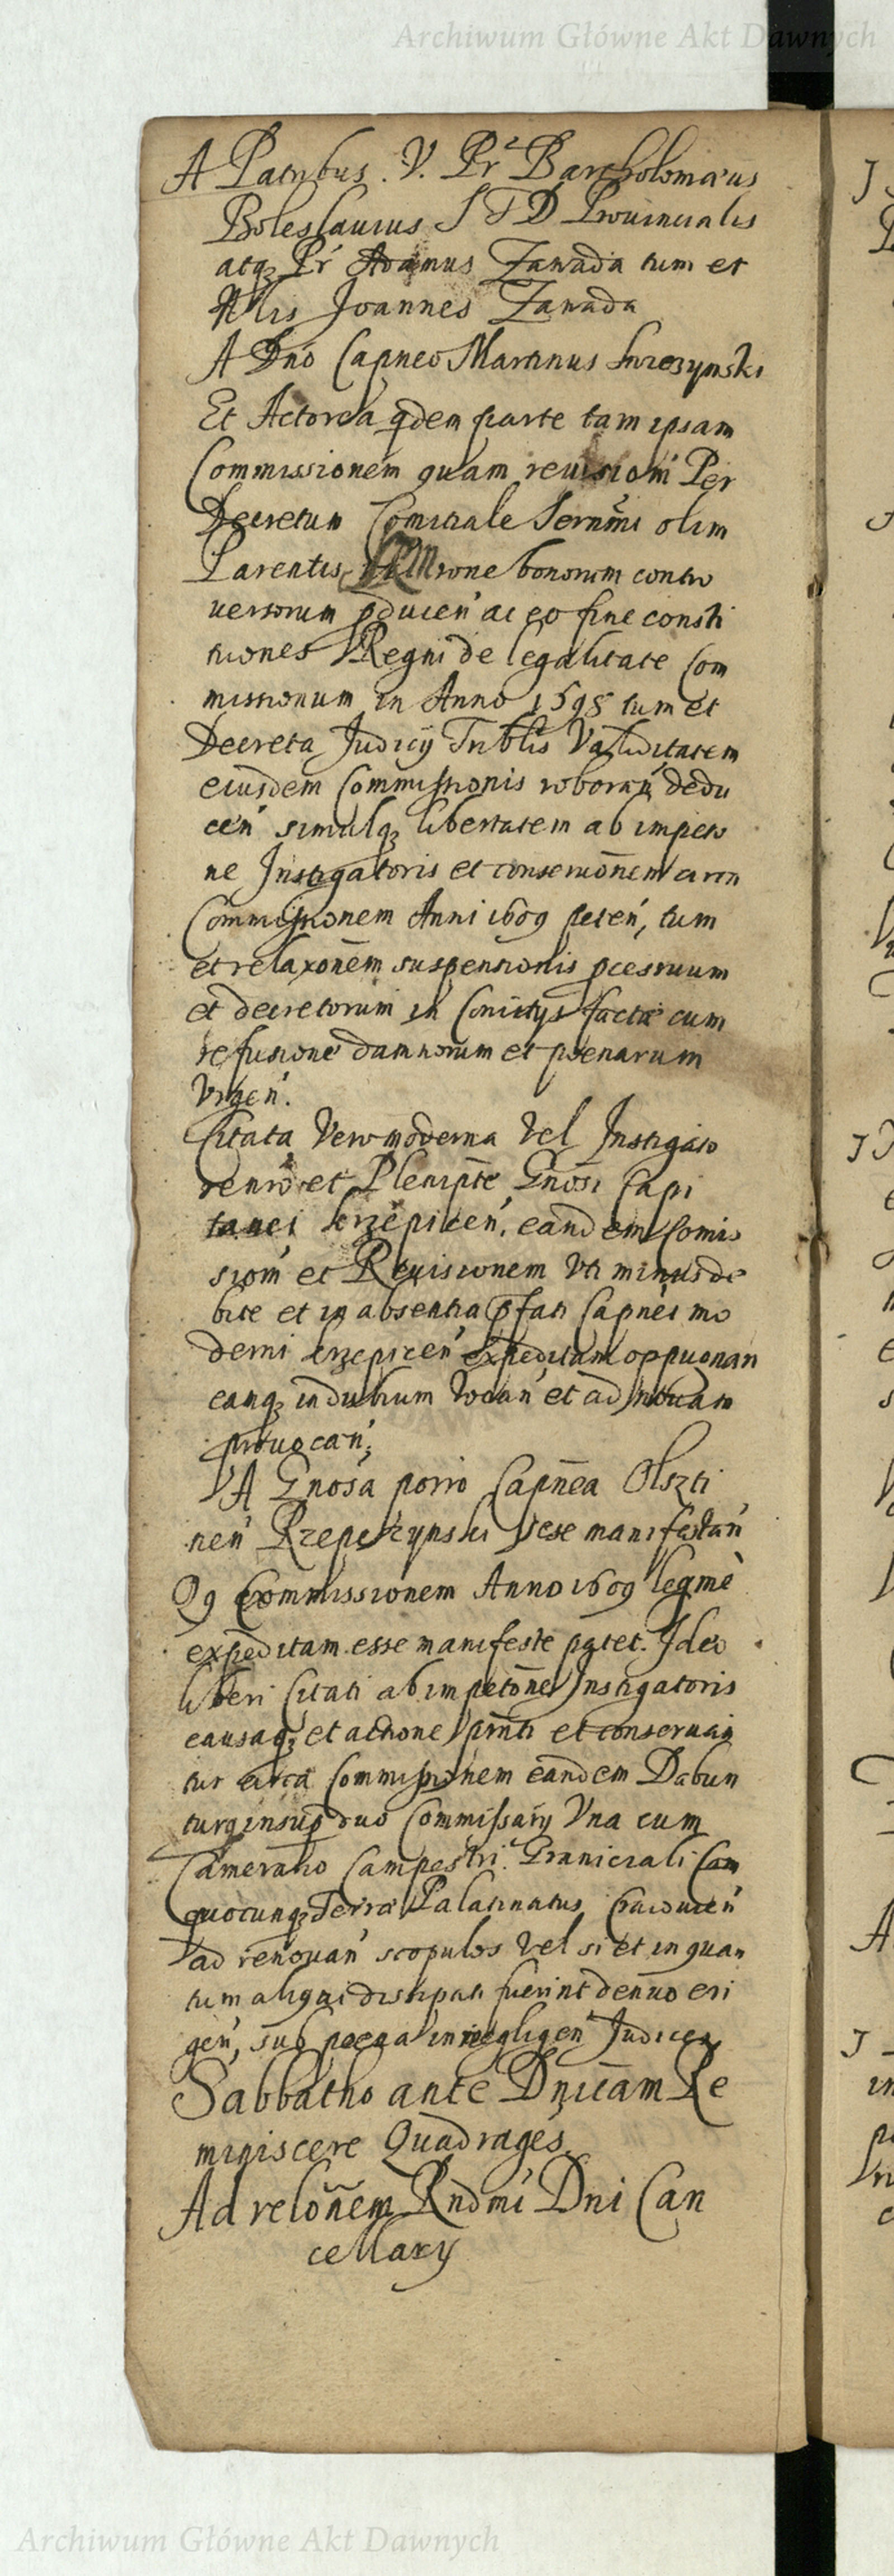 Archiwum Główne Akt Dawnych
A Patribus. V. Pr. Bartholomæus
Boleslauius S T D Prouincialis
atq3 Pr Adamus Zawada tum et
Nlis Joannes Zawada
A Dno Capneo Martinus
Et Actorea qdem parte tam ipsam
Commissionem quam reuisiom Per
Decretum Comitiale Sernmi olim
Parentis rone bonorum contro
uersorum pducen ac eo fine consti
tuiones Regni de legalitate Com
missionum in Anno 1598 tum et
Decreta Judicij Triblis Validitatem
eiusdem Commissionis roboran dedu
cen simulq3 libertatem ab impeto
ne Instigatoris et conseruonem circa
Commissionem Anni 1609 peten, tum
et relaxonem suspensionis pcessuum
et decretorum in Comitijs factæ cum
refusione damnorum et poenarum
Vrgen.
Citata Vero moderna Vel Instigato
renro et Plenipte Gnosi Capi
tanei krzepicen, eandem Comis
siom et Reuisionem Vti minus de
bite et in absentia pfati Capnei mo
derni krzepicen expeditam oppugnan
eamq3 in dubium Vocan et ad nouam
prouocan;
A Gnosa porro Capnea Olszti
nen Rzepeczynski sese manifestan
Qq Commissionem Anno 1609 legme
expeditam esse manifeste patet. Ideo
liberi Citati ab impetone Instigatoris
causaq3 et actione pnti et conseruan
tur circa Commissionem eandem Dabun
turq insup duo Commissarij Vna cum
Camerario Campestri Granicиali Cam
quocunq3 Terræ Palatinatus Cracouien
ad renouan scopulos Vel si et in quan
tum aliqui dissipati fuerint denuo eri
gen, sub poena in negligen Judices
Sabbatho ante Dnicam Re
miniscere Quadrages.
Ad relonem Rndmi Dni Can
cellary
Archiwum Główne Akt Dawnych